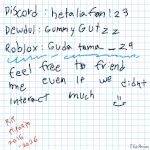 Discord: hetaliafan123
Pewdol: Gummy GUTZz
Roblox: Guda tama__24
feel free to friend
me even if we didnt
interact much :)
RIP
2016
2026